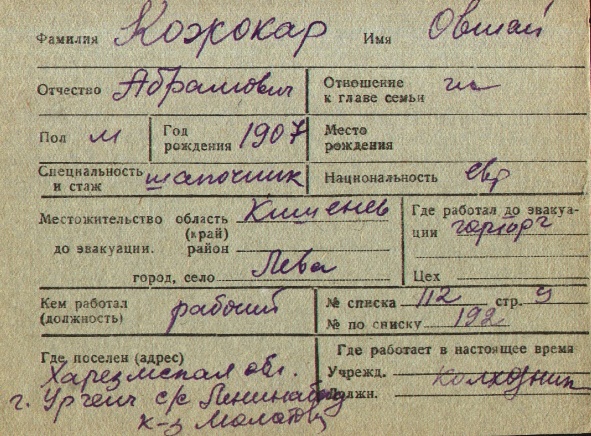 Фамилия Кожокар Имя Овшай
Отчество Абрамович Отношение к главе семьи гс
Пол м Год рождения 1907 Место рождения
Специальность и стаж шапочник Национальность евр
Местожительство до эвакуации. область (край) Кишенев
район
город, село Лева
Где работал до эвакуации горторг
Цех
Кем работал (должность) рабочий № списка 112 стр. 9
№ по списку 192
Где поселен (адрес)
Харезмская обл.
г. Ургенч с/с Ленинабад
к-з Молотов
Где работает в настоящее время
Учрежд. колхозник
Должн.